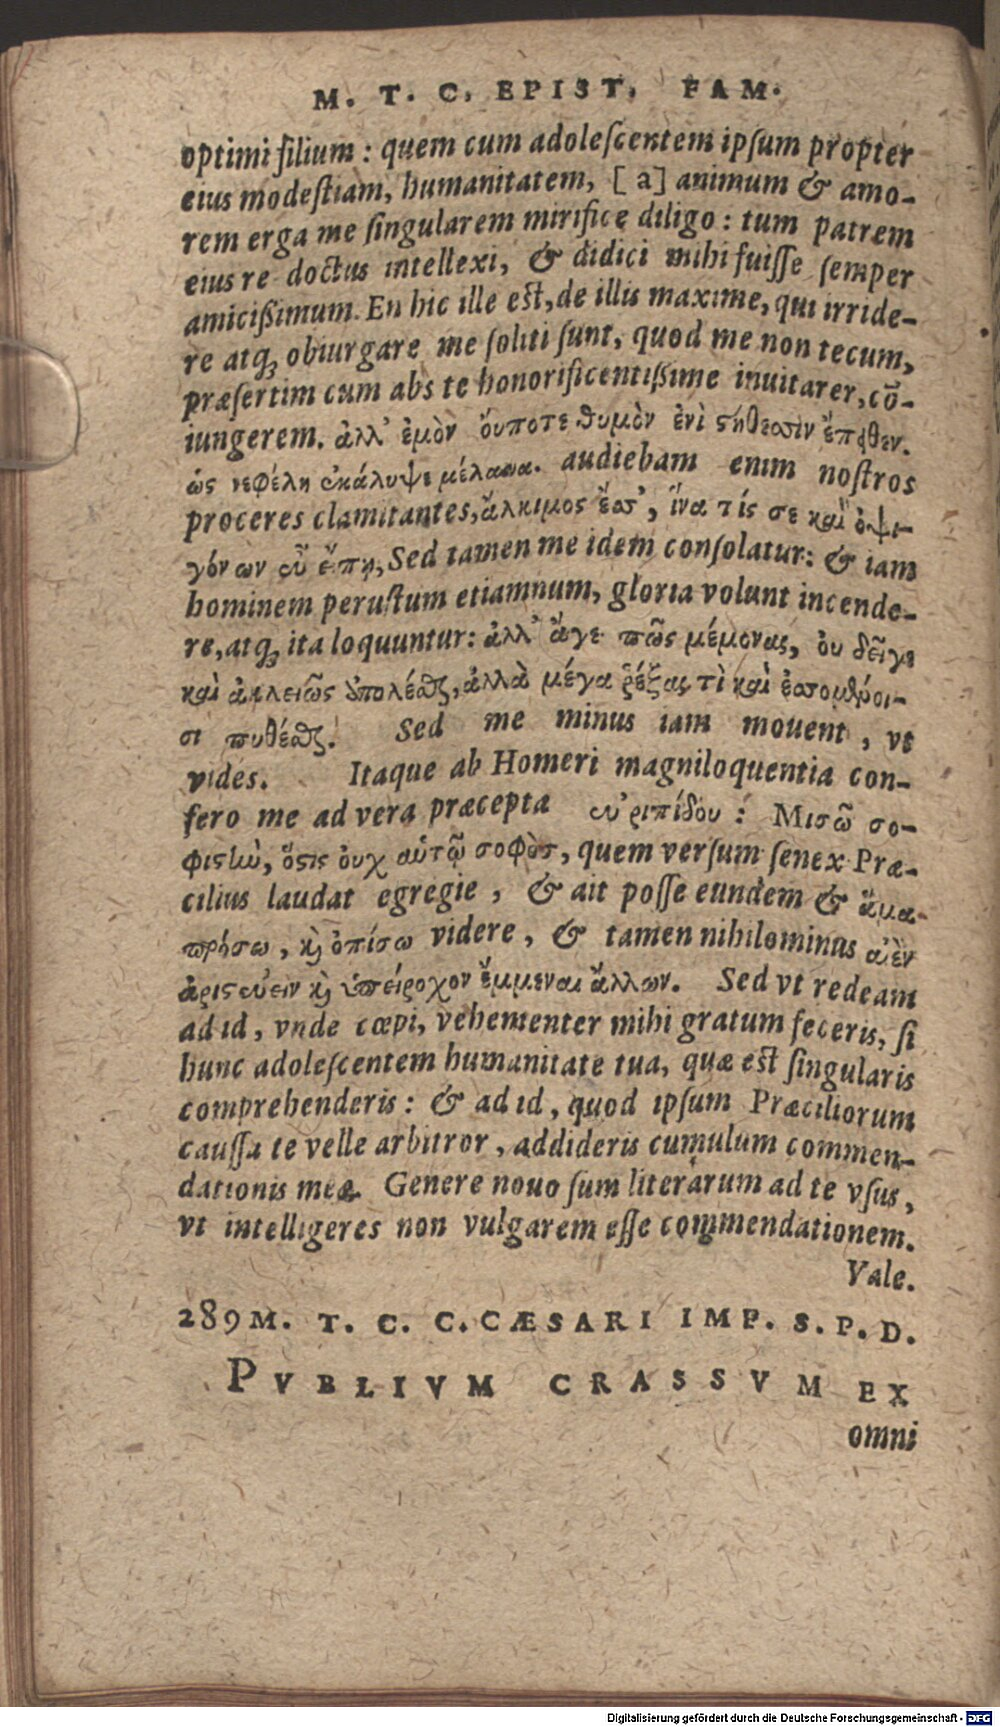 M. T. C. EPIST. FAM.
optimi filium : quem cum adoleſcentem ipſum propter
eius modeſtiam, humanitatem, [a] animum & amo-
rem erga me ſingularem mirificę diligo : tum patrem
eius re doctus intellexi, & didici mihi fuiſſe ſemper
amicißimum. En hic ille eſt, de illis maxime, qui irride-
re atq; obiurgare me ſoliti ſunt, quod me non tecum,
præſertim cum abs te honorificentißime inuitarer, cō-
iungerem. ἀλλ' ἐμὸν ὄυποτε θυμὸν ἐνὶ ςήθεσσιν ἔπειθεν.
ὡς νεφέλη ἐκάλυψε μέλαινα. audiebam enim noſtros
proceres clamitantes, ἄλκιμος ἔσσ', ἵνα τίς σε καὶ ὀψι-
γόνων εὖ ἔπῃ, Sed tamen me idem conſolatur: & iam
hominem peruſtum etiamnum, gloria volunt incende-
re, atq; ita loquuntur: ἀλλ' ἄγε πῶς μέμονας, ὀυ δεῖγε
καὶ ἀκλειῶς ὑπολέσθαι, ἀλλὰ μέγα ῥέξας τὶ καὶ ἐσσομένοι-
σι πυθέσθαι. Sed me minus iam mouent, vt
vides. Itaque ab Homeri magniloquentia con-
fero me ad vera præcepta ευ'ριπίδου : Μισῶ σο-
φιςὴν, ὅςις ὀυχ αὑτῷ σοφὸσ, quem verſum ſenex Præ-
cilius laudat egregie, & ait poſſe eundem & ἅμα-
πρήσω, κὶ ὀπίσω videre, & tamen nihilominus αἰὲν
ἀριςεύειν κὶ ὑπείροχον ἔμμεναι ἄλλων. Sed vt redeam
ad id, vnde cœpi, vehementer mihi gratum feceris, ſi
hunc adoleſcentem humanitate tua, quæ eſt ſingularis
comprehenderis : & ad id, quod ipſum Præciliorum
cauſſa te velle arbitror, addideris cumulum commen-
dationis meæ. Genere nouo ſum literarum ad te vſus,
vt intelligeres non vulgarem eſſe commendationem.
Vale.
289 M. T. C. C. CÆSARI IMP. S. P. D.
PVBLIVM CRASSVM EX
omni
Digitalisierung gefördert durch die Deutsche Forschungsgemeinschaft - DFG